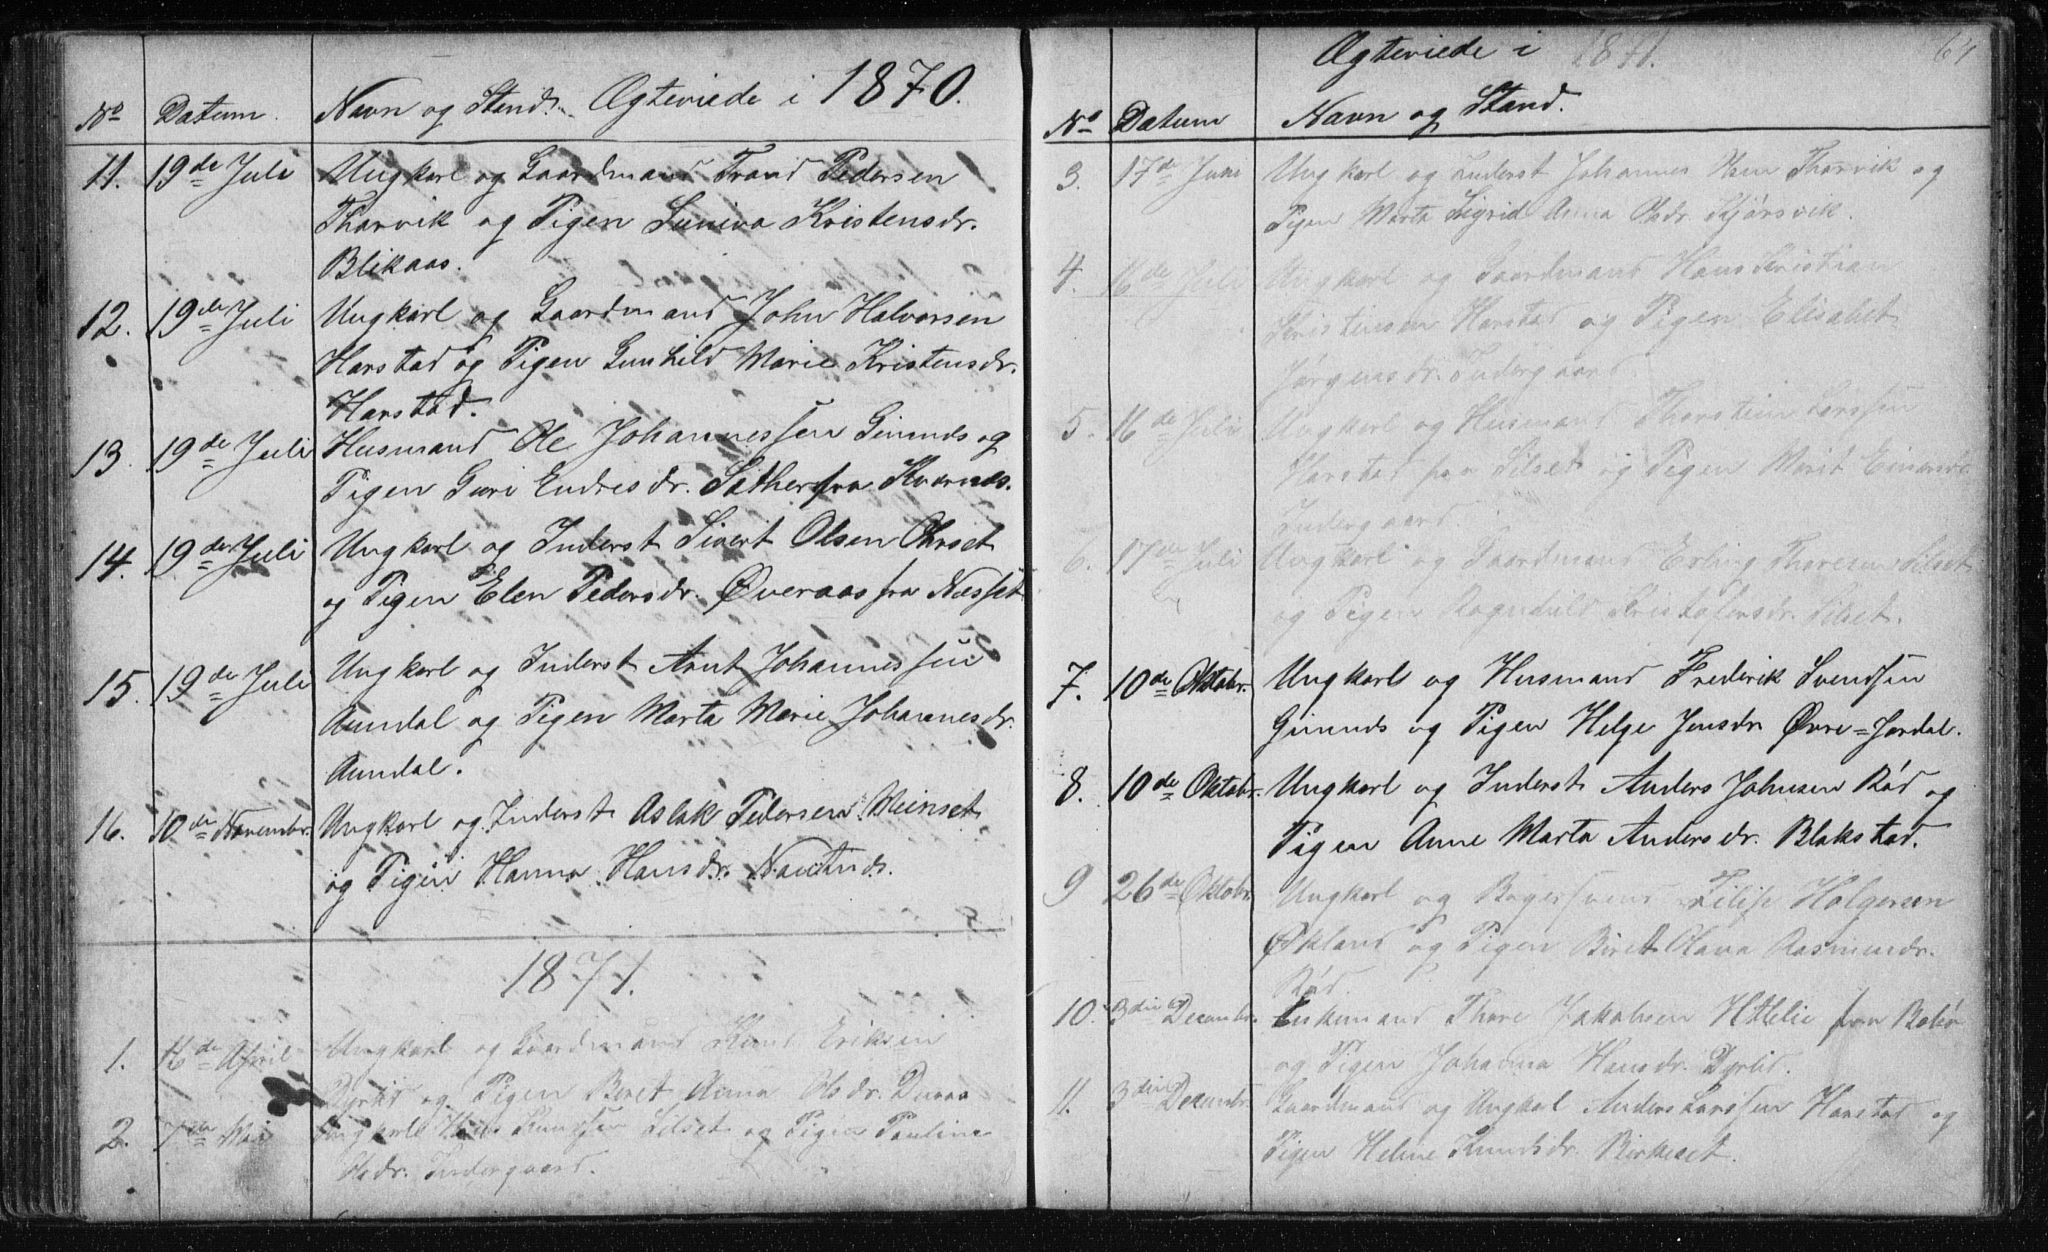 No Datum. Navn og Stand. Ægteviede i 1870.
11. 19de Juli Ungkarl og Gaardmand Trond Pedersen
Thorvik og Pigen Suniva Kristensdr.
Blikaas.
12. 19de Juli Ungkarl og Gaardmand John Halvorsen
Harstad og Pigen Gunhild Marie Kristensdr.
Harstad.
13. 19de Juli Husmand Ole Johannessen Gimnds og
Pigen Guri Endresdr. Sather fra Kvernds.
14. 19de Juli Ungkarl og Inderst Sivert Olsen Orset
og Pigen Elen Pedersdr. Øveraas fra Nesset
15. 19de Juli Ungkarl og Inderst Arnt Johannessen
Aundal og Pigen Marta Marie Johannesdr.
Aundal.
16. 10de Novembr. Ungkarl og Inderst Aslak Pedersen Meinset
og Pigen Hanna Hansdr.
1871.
1. 16de April Ungkarl og Gaardmand Knud Eriksen
Dyrlid og Pigen Beret Anna Olsdr.
2. 7de Mai Ungkarl Knudsen Silset og Pigen Pauline
Olsdr. Indergaard.
Ægteviede i 1871. 64
No Datum Navn og Stand.
3. 17de Juni Ungkarl og Inderst Johannes Olsen Thorvik og
Pigen Marta Sigrid Anna Olsdr. Kjørsvik.
4. 16de Juli Ungkarl og Gaardmand Hans Kristian
Kristensen Harstad og Pigen Elisabet
Jørgensdr. Indergaard.
5. 16de Juli Ungkarl og Husmand Thorstein Larssen
Harstad fra Silset og Pigen Marit Einarsdr.
Indergaard.
6. 17de Juli Ungkarl og Gaardmand Erling Thoresen Silset
og Pigen Ragnhild Kristofersdr. Silset.
7. 10de Oktobr. Ungkarl og Husmand Frederik Svendsen
Gimnds og Pigen Helge Jensdr Øvre=Jordal.
8. 10de Oktobr. Ungkarl og Inderst Anders Johnsen Rød og
Pigen Anne Marta Andersdr. Blakstad.
9 26de Oktobr. Ungkarl og Bagersvend Filip Holgersen
Økland og Pigen Beret Olava Rasmusdr.
Rød.
10. 3die Decembr. Enkemand Thore Jakobsen fra Bolsø
og Pigen Johanna Hansdr. Dyrlid.
11. 3die Decembr. Gaardmand og Ungkarl Anders Larssen Harstad og
Pigen Heline Knudsdr. Birkeset.